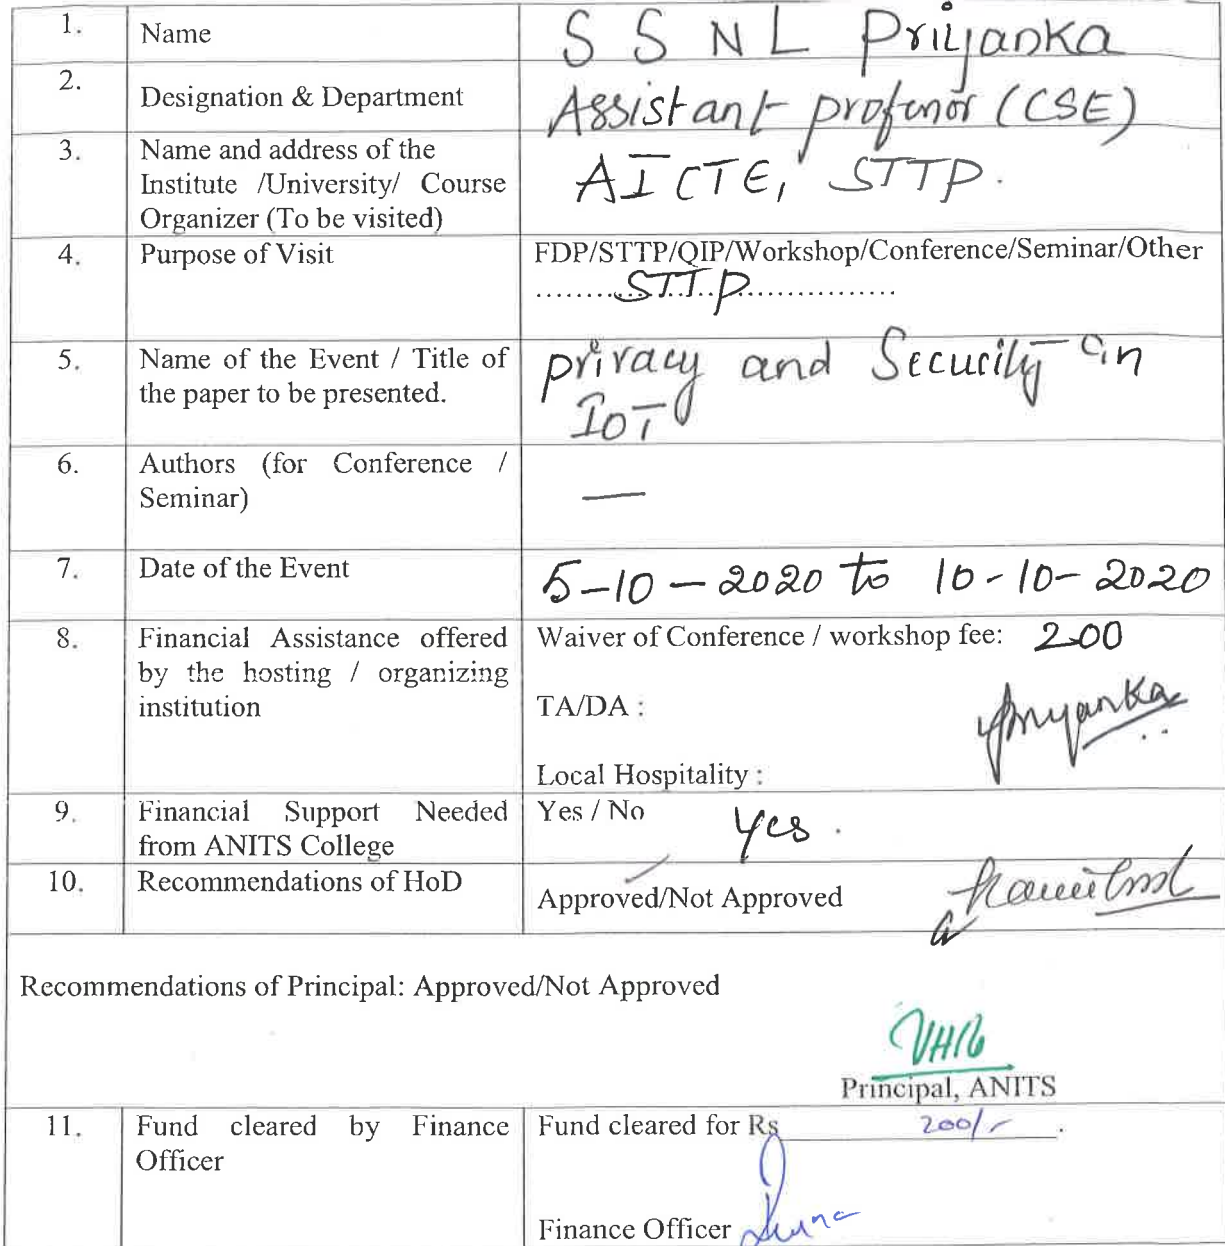 1. Name S S N L Priyanka
2. Designation & Department Assistant professor (CSE)
3. Name and address of the Institute /University/ Course Organizer (To be visited) AICTE, STTP.
4. Purpose of Visit FDP/STTP/QIP/Workshop/Conference/Seminar/Other
.........STTP................
5. Name of the Event / Title of the paper to be presented. privacy and Security in IoT
6. Authors (for Conference / Seminar) —
7. Date of the Event 5-10-2020 to 10-10-2020
8. Financial Assistance offered by the hosting / organizing institution
Waiver of Conference / workshop fee: 200
TA/DA :
Priyanka
Local Hospitality :
9. Financial Support Needed from ANITS College Yes / No Yes.
10. Recommendations of HoD Approved/Not Approved
Recommendations of Principal: Approved/Not Approved
Principal, ANITS
11. Fund cleared by Finance Officer Fund cleared for Rs 200/- .
Finance Officer